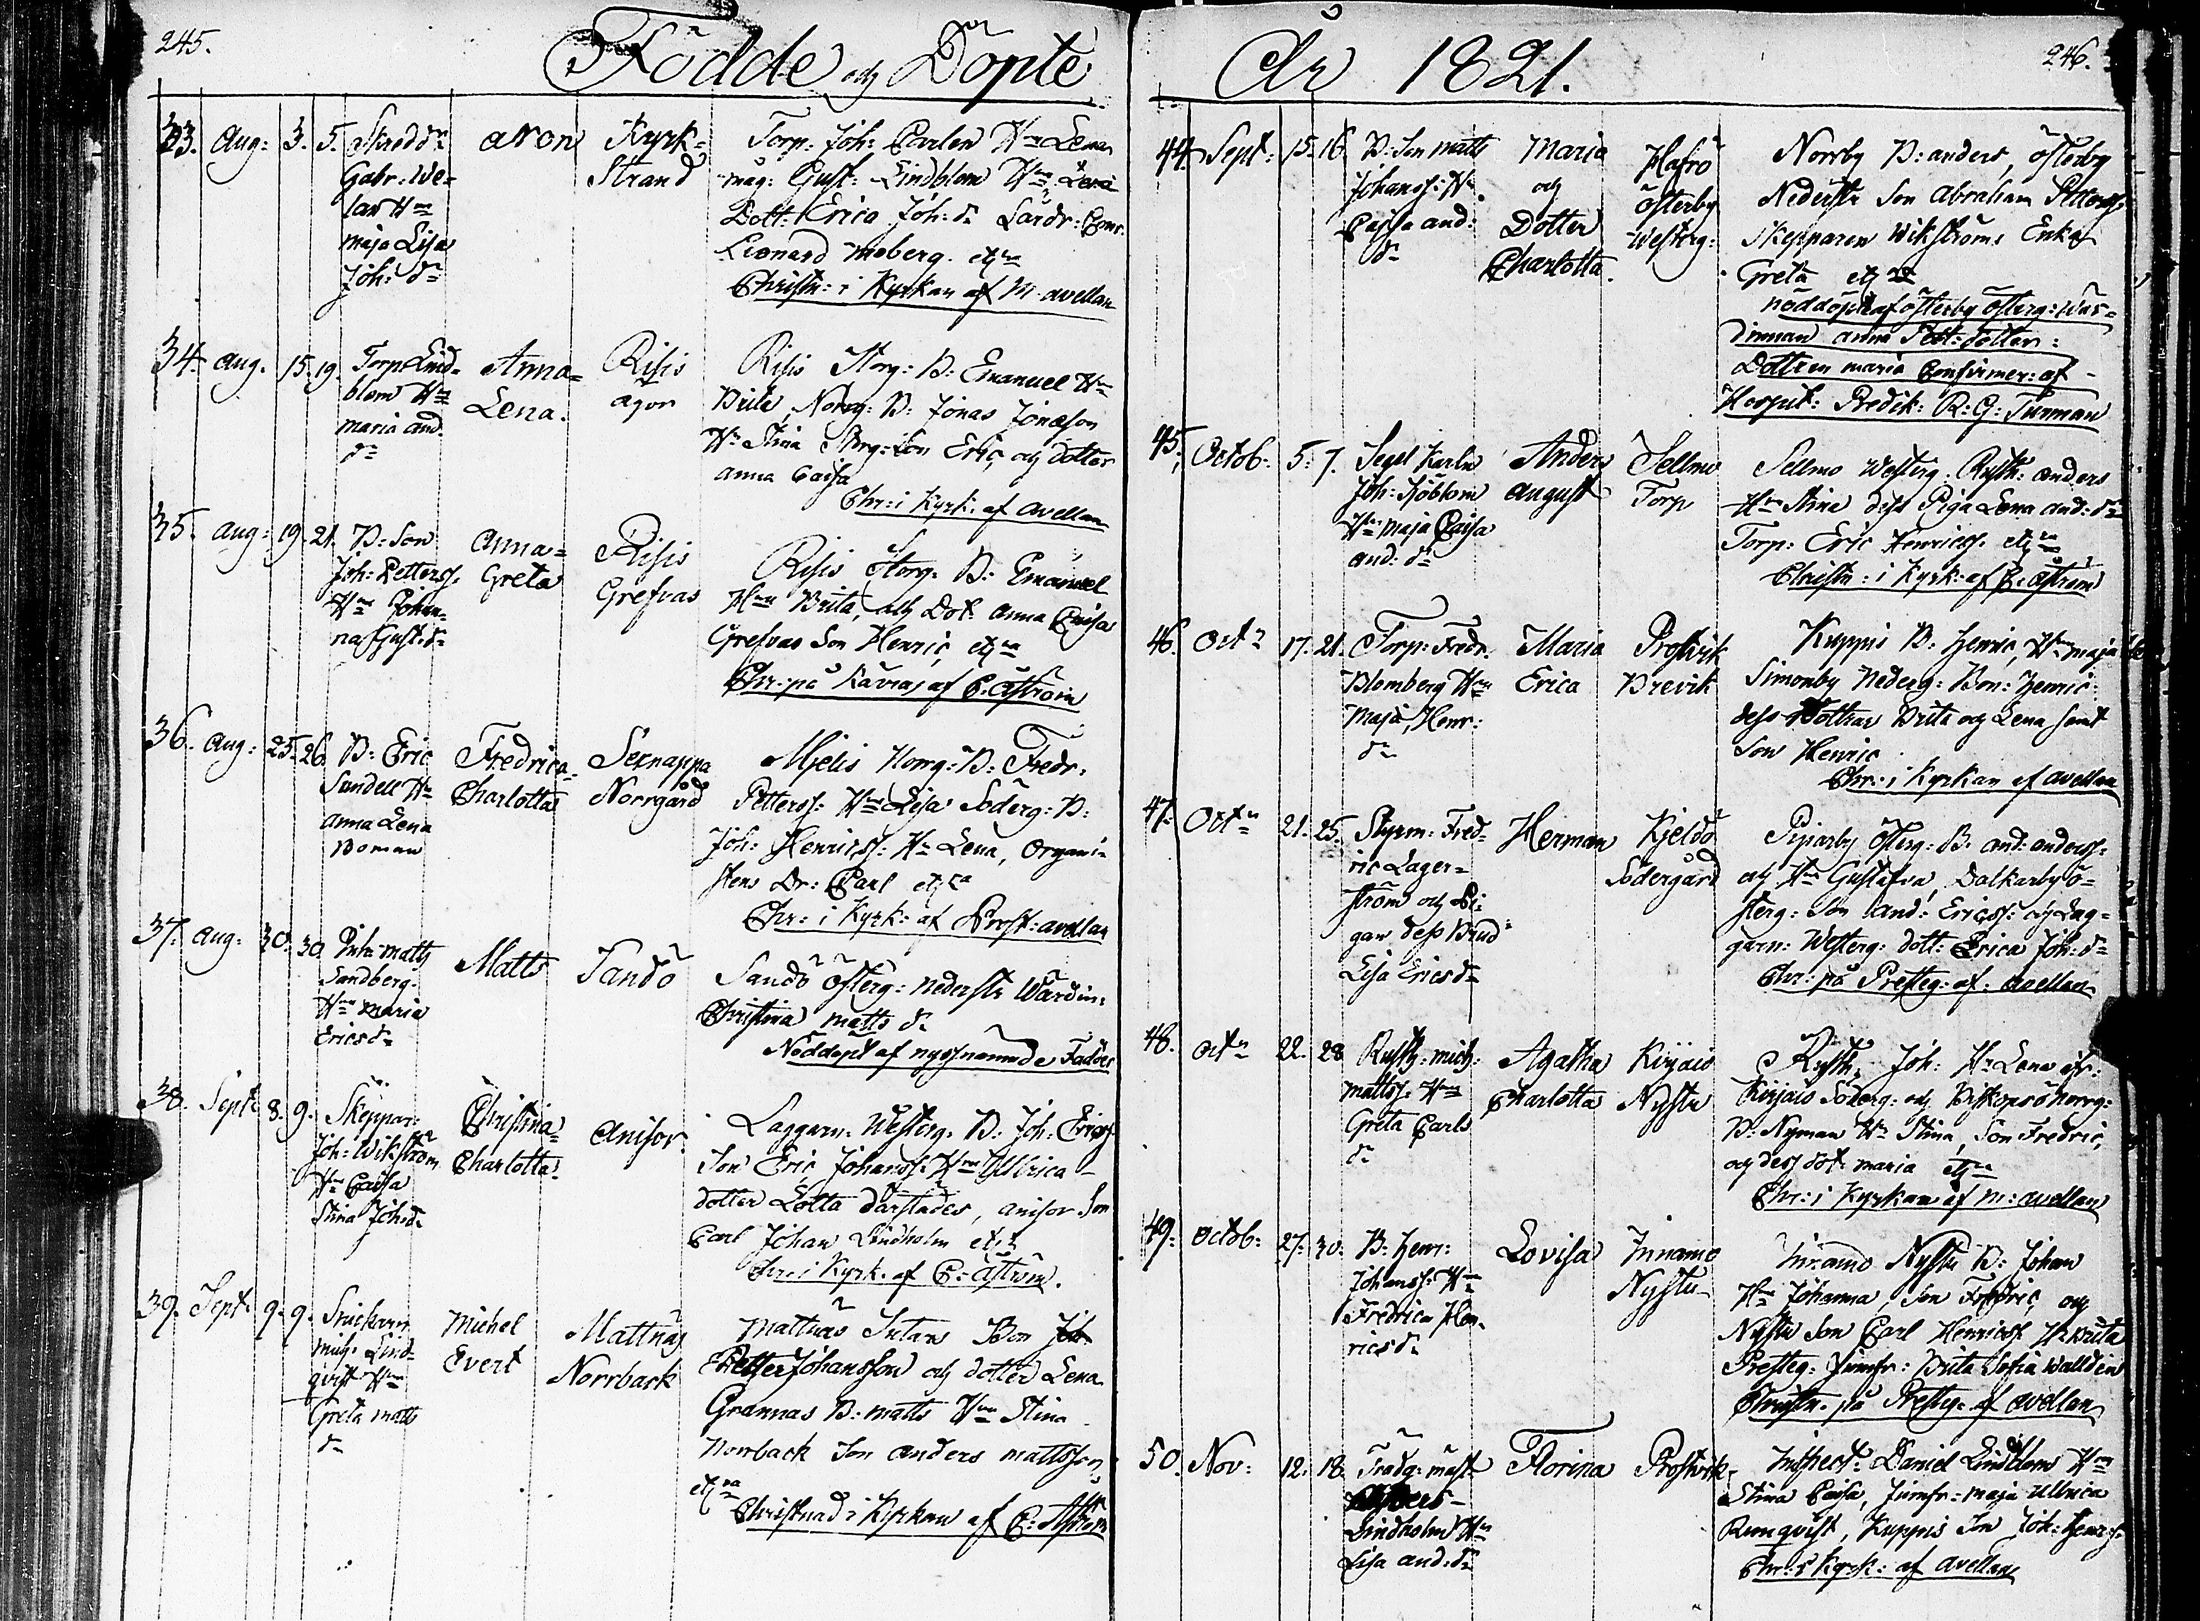 245.
Födde och Döpte
33. Aug: 3. 5. Skredd:
Gabr: We-
lan Hu
Maja Lisa
Joh: dr
Aron
Kyrk-
Strand
Torp: Joh: Carlen Hu Lena
mag: Gust: Lindblom Hu Lena
Dott: Erica Joh: dr
Leonard Moberg. etc
Christn: i Kyrkan af M. Avellan
34. Aug. 15. 19. Torp Lind-
blom Hu
Maria And.
dr
Anna-
Lena.
Risis
ägor
Risis Storg: B: Emanuel Hu
Brita, Norrg: B: Jonas Jonasson
Hu Stina Storg: Son Eric och dotter
Anna Caisa
Chr: i Kyrk: af Avellan
35. Aug: 19. 21. B: Son
Joh: Petterss.
Hu Johan-
na Gust: dr
Anna-
Greta
Risis
Grefvas
Risis Storg: B: Emanuel
Hu Brita, och Dot. Anna Caisa
Grefvas Son Henric, etc
Chr: på af C. Åström
36. Aug: 25. 26. B: Eric
Sundell Hu
Anna Lena
Boman
Fredrica-
Charlotta
Sexnappa
Norrgård
Mjelis Norrg: B: Fredr.
Petterss: Hu Lisa Söderg: B:
Joh: Henricss: Hu Lena, Organi-
stens Dr: Carl etc
Chr: i Kyrk: af Prost: Avellan
37. Aug: 30. 30. Matts
Sandberg.
Hu Maria
Ericsdr
Matts
Sandö
Sandö Österg: nederste Wärdin:
Christina Matts dr
Nöddöpt af nyssnämnde Fadder
38. Sept: 8. 9. Skeppar:
Joh: Wikström
Hu Caisa
Stina Johsdr
Christina-
Charlotta.
Anisor.
Laggarn. Westerg. B: Joh: Ericss.
Son Eric Johanss: Hu Ullrica
dotter Lotta därstädes, Anisor Son
Carl Johan Lindholm etc
Chr: i Kyrk. af C: Åström.
39. Sept: 9. 9. Snickarn
Mich: Lind-
qvist Hu
Greta Matts
dr
Michel
Evert
Mattnäs
Norrback
Mattnäs Sutars Bon
Petter Johansson och dotter Lena
Grannas B: Matts Hu Stina
Norrback Son Anders Mattsson
etc
Christnad i Kyrkan af C: Åström
År 1821.
246.
44. Sept: 15. 16. B: Son Matts
Johanss: Hu
Caisa And:
dr
Maria
och
Dotter
Charlotta.
Hafrö
Österby
Westerg:
Norrby B: Anders, Österby
Nederste Son Abraham Petterss.
Skepparen Wikströms Enka
Greta etc
nöddöpt af Österby Österg: Wär-
dinnan Anna Pett: dotter:
Dottren Maria Confirmer: af
Predik: R: G: Tunman
45. Octob: 5. 7. Segel Karln
Joh: Sjöblom
Hu Maja Caisa
And: dr
Anders
August
Sellmo
Torp
Sellmo Westerg. Rusth: Anders
Hu Stina dess Piga Lena And: dr
Torp: Eric Henricss. etc
Christn: i Kyrk: af C: Åström
46. Octr 17. 21. Torp: Fredr.
Blomberg Hu
Maja Henr:
dr
Maria
Erica
Prostvik
Brevik
Kuppis B: Henric, Hu Maja
Simonby Nederg: Bon: Henric
dess Dottrar Brita och Lena samt
Son Henric
Chr: i Kyrkan af Avellan
47. Octr 21. 25. Styrm: Fred-
ric Lager-
ström och Pi-
gan dess Brud
Lisa Ericsdr
Herman
Kjeldö
Södergård
Piparby Österg: B. And: Anderss:
och Hu Gustafva, Dalkarby Ö-
sterg: Son And: Ericss: och Lag-
garn: Westerg: dott: Erica Joh: dr
Chr: på Presteg: af: Avellan
48. Octr 22. 28 Rusth: Mich:
Mattss: Hu
Greta Carls
dr
Agatha
Charlotta
Kirjais
Nystu
Rusth. Joh: Hu Lena
Kirjais Söderg: och Biskopsö Norrg:
B: Nyman Hu Stina, Son Fredric,
och dess dot. Maria etc
Chr: i Kyrkan af M: Avellan
49: Octob: 27. 30: B: Henr:
Johanss: Hu
Fredrica Hen-
ricsdr
Lovisa
Innamo
Nystu
Innamo Nystu B: Johan
Hu Johanna, Son Fredric och
Nystu Son Carl Henricss Hu Brita
Presteg: Jumfr: Brita Sofia Walldein
Christn. på Presteg: af Avellan
50. Nov: 12. 18. Trädg: mäst.
Lindholm Hu
Lisa And: dr
Florina
Prostvik
Inspect: Daniel Lindblom Hu
Stina Caisa, Jumfr: Maja Ullrica
Runqvist, Kuppis Son Joh: Henrss.
Chr: i Kyrk: af Avellan